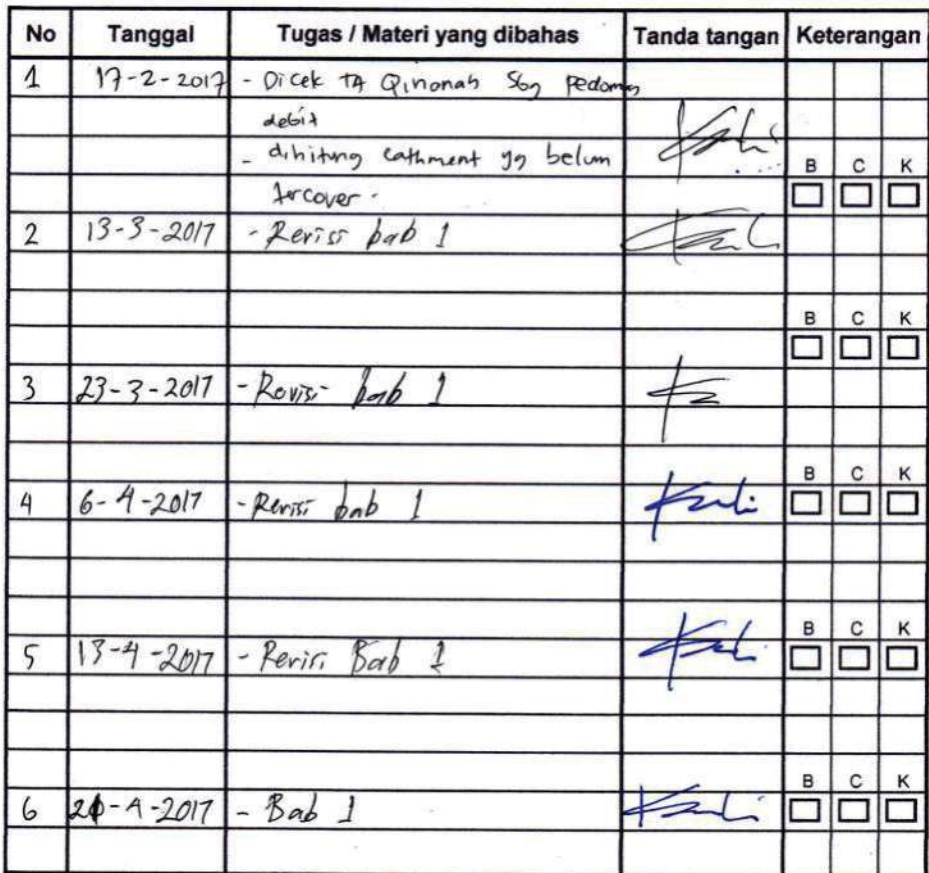 No Tanggal Tugas / Materi yang dibahas Tanda tangan Keterangan
1 17-2-2017 - Dicek TA Qinonah Sbg Pedoman
debit
- dihitung cathment yg belum
B C K
tercover.
2 13-3-2017 - Revisi bab 1
B C K
3 23-3-2017 - Revisi bab 1
B C K
4 6-4-2017 - Revisi bab 1
B C K
5 13-4-2017 - Revisi Bab 1
B C K
6 -4-2017 - Bab 1